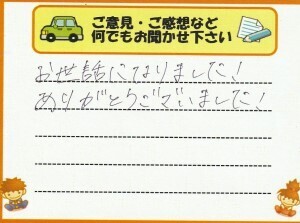 ご意見・ご感想など
何でもお聞かせ下さい
お世話になりました!
ありがとうございました!